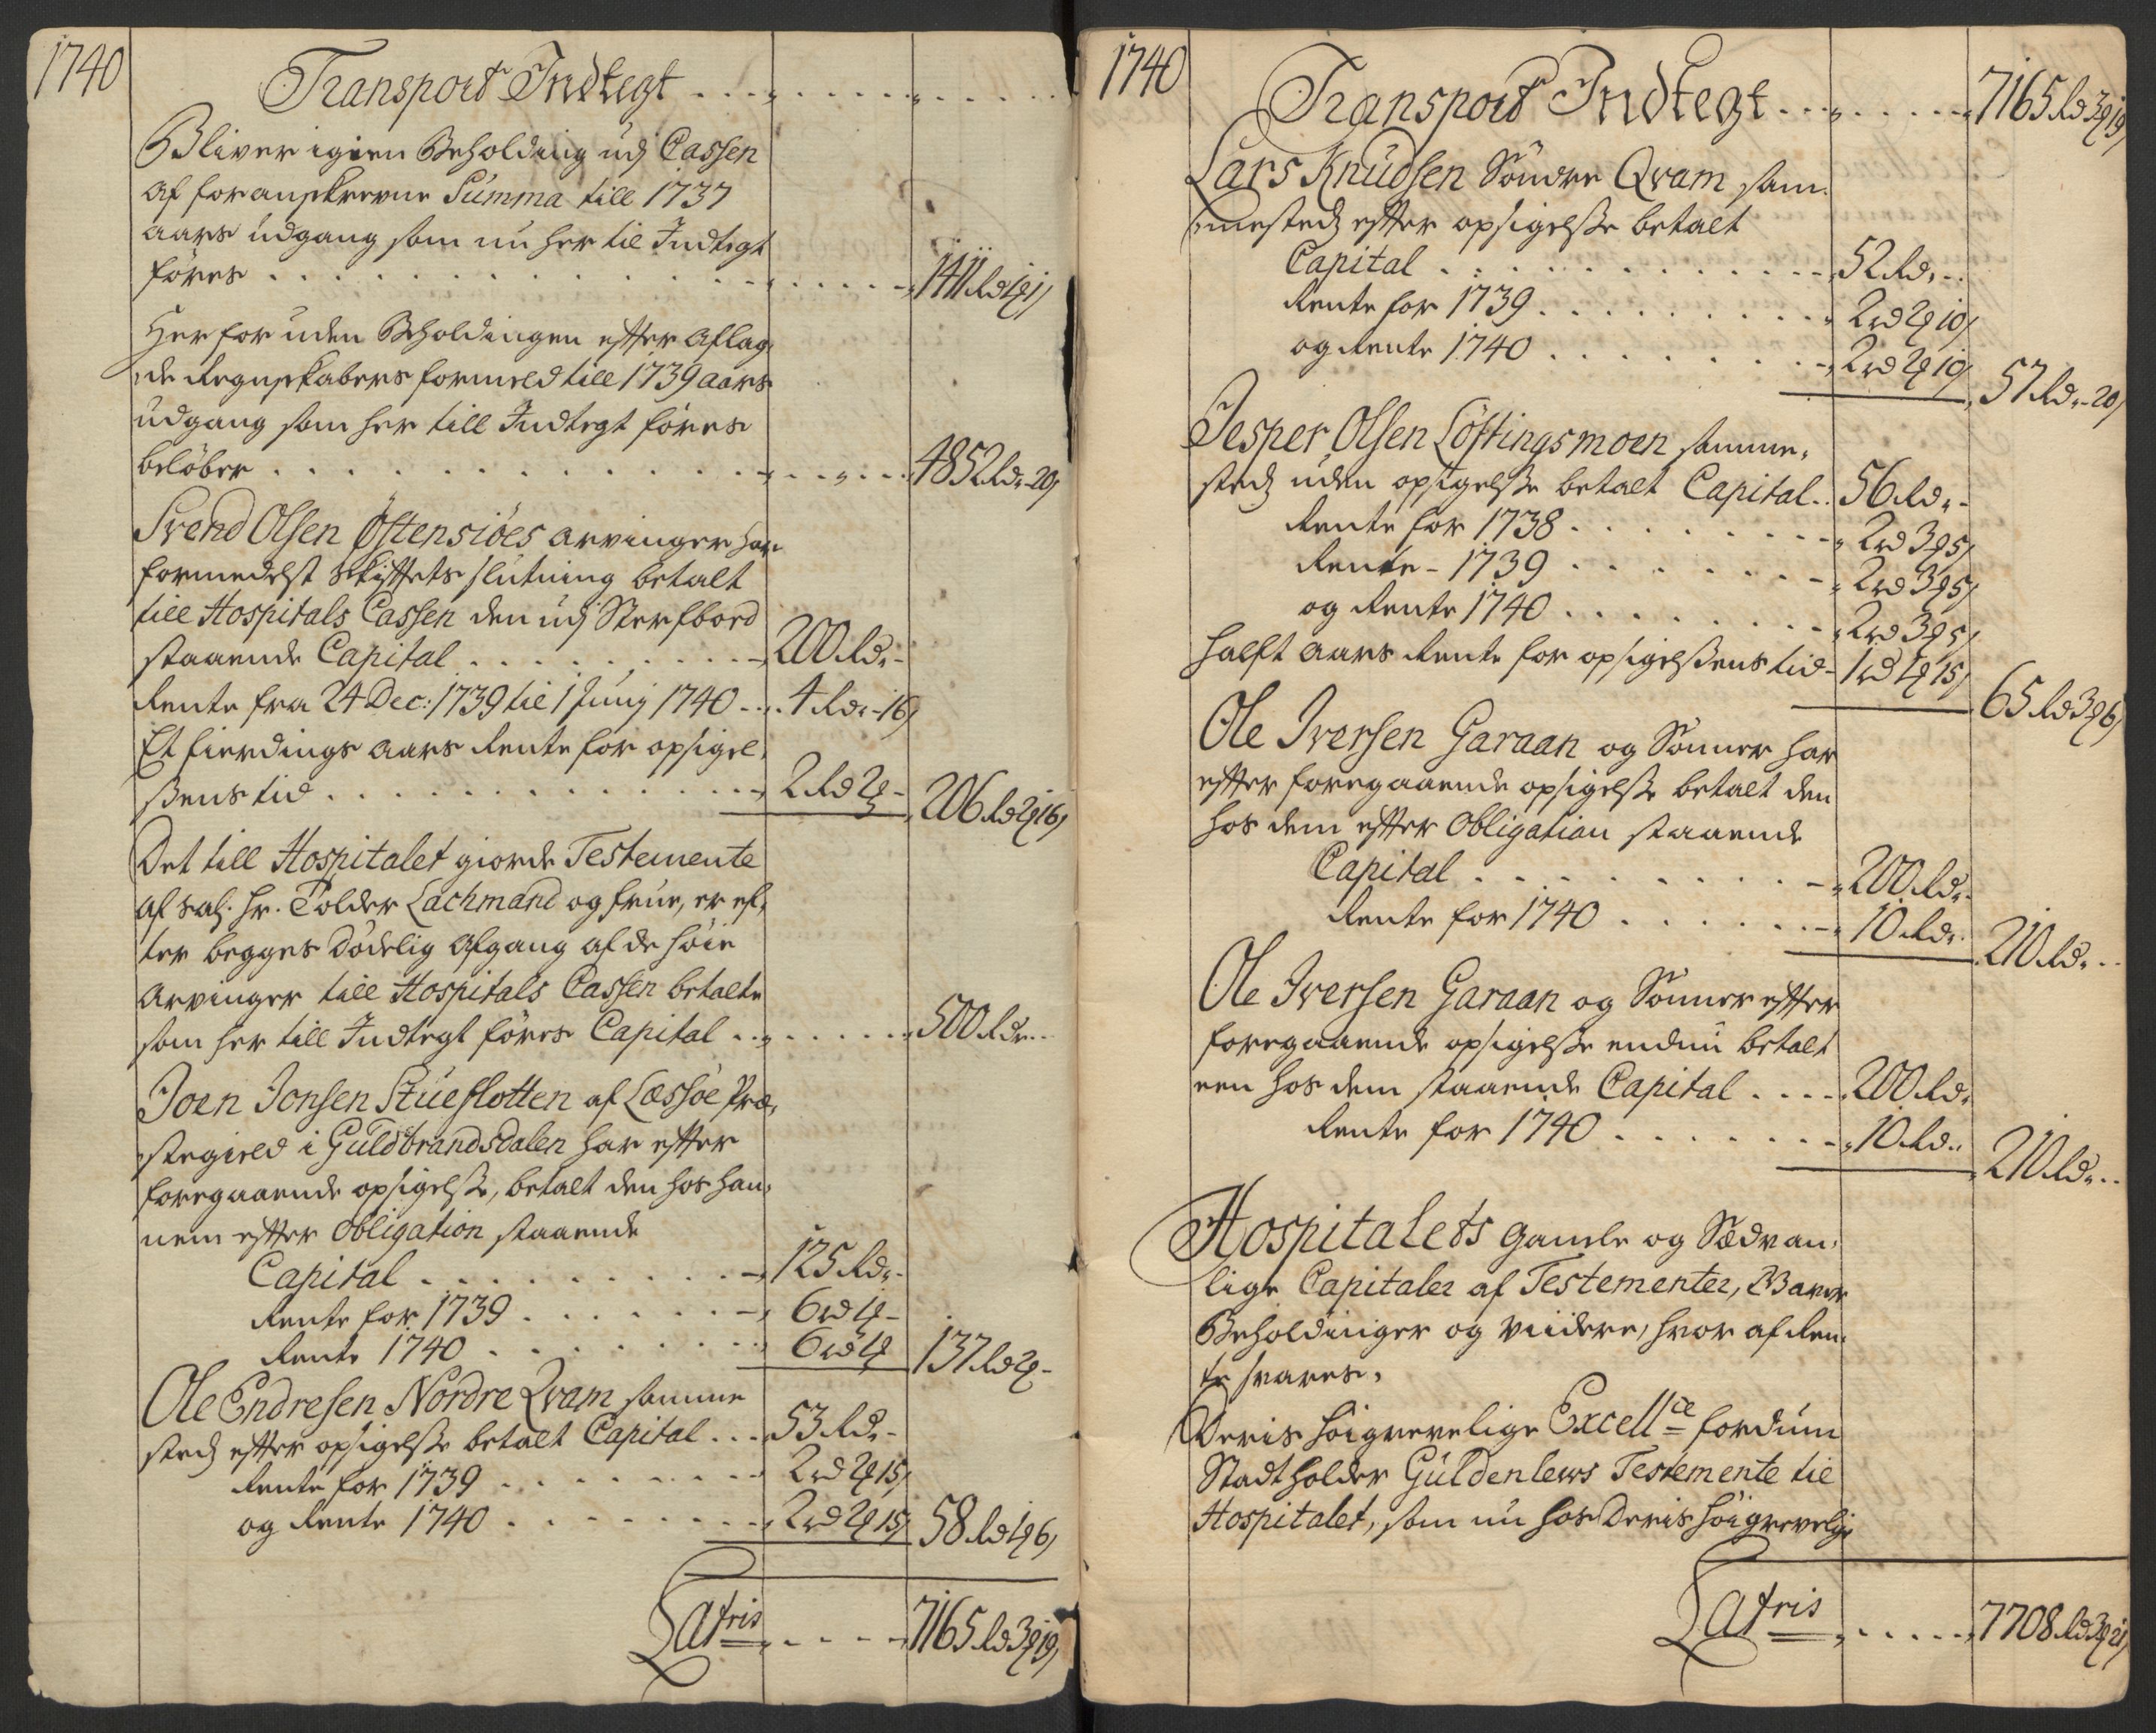 1740
Transport Indtegt
Bliver igien Beholding udj Cassen
af foranskrevne Summa till 1737
aars udgang som nu her til Indtegt
föres 1411 Rd 1 ort 1 s
Her for uden Beholdingen effter aflag-
de Regnskabers formeld till 1739 aars
udgang som her till Indtegt föres
belöber 4852 Rd - 20 s
Svend Olsen Østensiöes arvinger har
formedelst Skifftets slutning betalt
till Hospitals Cassen den udj Sterfboed
staaende Capital 200 Rd -
Rente fra 24 Dec: 1739 til 1 Junij 1740 4 Rd - 16 s
Et fierdings aars Rente for opsigel-
ßens tid 2 Rd 2 ort - 206 Rd 2 ort 16 s
Det till Hospitalet giorde Testemente
af Sal. Hr. Tolder Lachmand og frue, er ef-
ter begges Dödelig afgang af de höie
arvinger till Hospitals Cassen betalte
som her till Indtegt föres Capital 500 Rd
Joen Jonsen Stueflotten af Læssöe Præ-
stegield i Guldbrandsdalen har effter
foregaaende opsigelße, betalt den hos han-
nem effter Obligation staaende
Capital 125 Rd -
Rente for 1739 6 rd 1 ort -
Rente 1740 6 rd 1 ort 137 Rd 2 ort -
Ole Endresen Nordre Qvam samme
stedz effter opsigelße betalt Capital 53 Rd -
Rente for 1739 2 rd 2 ort 15 s
og Rente 1740 2 rd 2 ort 15 s 58 Rd 1 ort 6 s
Latris 7165 Rd 3 ort 19 s
1740
Transport Indtegt 7165 Rd 3 ort 19 s
Lars Knudsen Söndre Qvam sam-
mestedz effter opsigelße betalt
Capital 52 Rd -
Rente for 1739 2 rd 2 ort 10 s
og Rente 1740 2 rd 2 ort 10 s 57 Rd - 20 s
Jesper Olsen Löftingsmoen samme-
stedz uden opsigelße betalt Capital 56 Rd -
Rente for 1738 2 rd 3 ort 5 s
Rente - 1739 2 rd 3 ort 5 s
og Rente 1740 2 rd 3 ort 5 s
halft aars Rente for opsigelßens tid 1 rd 1 ort 15 s 65 Rd 3 ort 6 s
Ole Iversen Garaan og Sönner har
effter foregaaende opsigelße betalt den
hos dem effter Obligation staaende
Capital 200 Rd
Rente for 1740 10 Rd 210 Rd
Ole Iversen Garaan og Sönner effter
foregaaende opsigelße endnu betalt
een hos dem staaende Capital 200 Rd
Rente for 1740 10 Rd 210 Rd
Hospitalets gamle og Sædvan-
lige Capitaler af Testementer, Gaver
Beholdninger og viidere, hvor af Ren-
te svares.
Deris höigrevelige Excellce fordum
Stadtholder Güldenlews Testemente til
Hospitalet, som nu hos Deris höigrevelige
Latris 7708 Rd 3 ort 21 s